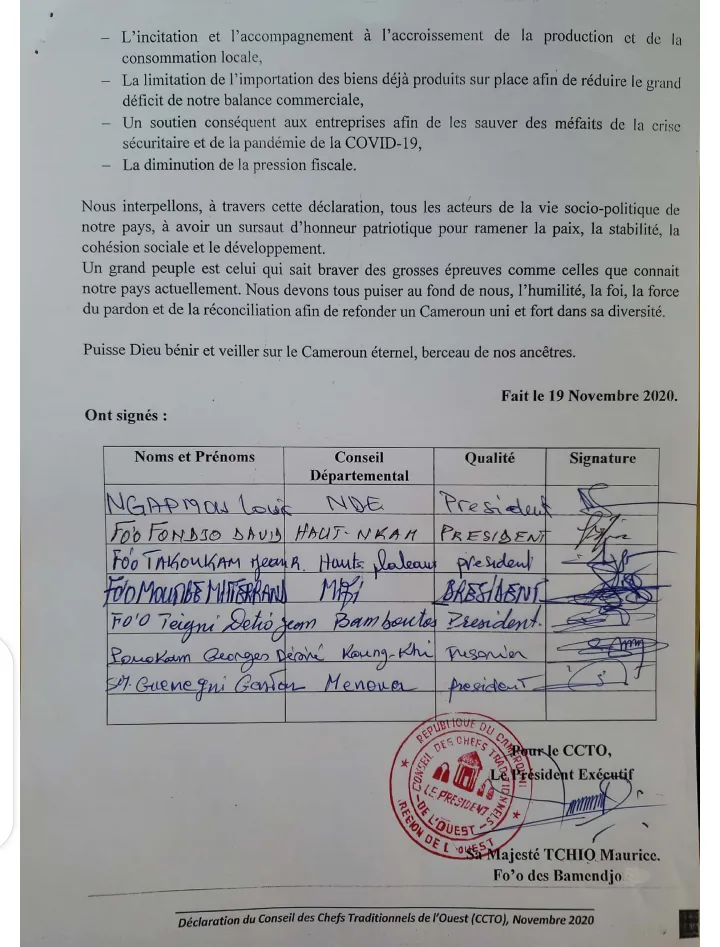 – L'incitation et l'accompagnement à l'accroissement de la production et de la
consommation locale,
– La limitation de l'importation des biens déjà produits sur place afin de réduire le grand
déficit de notre balance commerciale,
– Un soutien conséquent aux entreprises afin de les sauver des méfaits de la crise
sécuritaire et de la pandémie de la COVID-19,
– La diminution de la pression fiscale.
Nous interpellons, à travers cette déclaration, tous les acteurs de la vie socio-politique de
notre pays, à avoir un sursaut d'honneur patriotique pour ramener la paix, la stabilité, la
cohésion sociale et le développement.
Un grand peuple est celui qui sait braver des grosses épreuves comme celles que connait
notre pays actuellement. Nous devons tous puiser au fond de nous, l'humilité, la foi, la force
du pardon et de la réconciliation afin de refonder un Cameroun uni et fort dans sa diversité.
Puisse Dieu bénir et veiller sur le Cameroun éternel, berceau de nos ancêtres.
Fait le 19 Novembre 2020.
Ont signés :
Noms et Prénoms Conseil Départemental Qualité Signature
NGAPMOU Louis NDE President
FO'O FONDJO DAVID HAUT-NKAM PRESIDENT
FO'O TAKOUKAM Jean R. Hauts plateaux président
FO'O MOUMBE MITTERRAND Mifi PRESIDENT
FO'O Teigni Detio Jean Bamboutos President.
Georges Désiré Koung-Khi
SM. Guemegni Gaston Menoua president
REPUBLIQUE DU CAMEROUN
CONSEIL DES CHEFS TRADITIONNELS
DE L'OUEST
LE PRESIDENT
REGION DE L'OUEST
Pour le CCTO,
Le Président Exécutif
Sa Majesté TCHIO Maurice.
Fo'o des Bamendjo
Déclaration du Conseil des Chefs Traditionnels de l'Ouest (CCTO), Novembre 2020